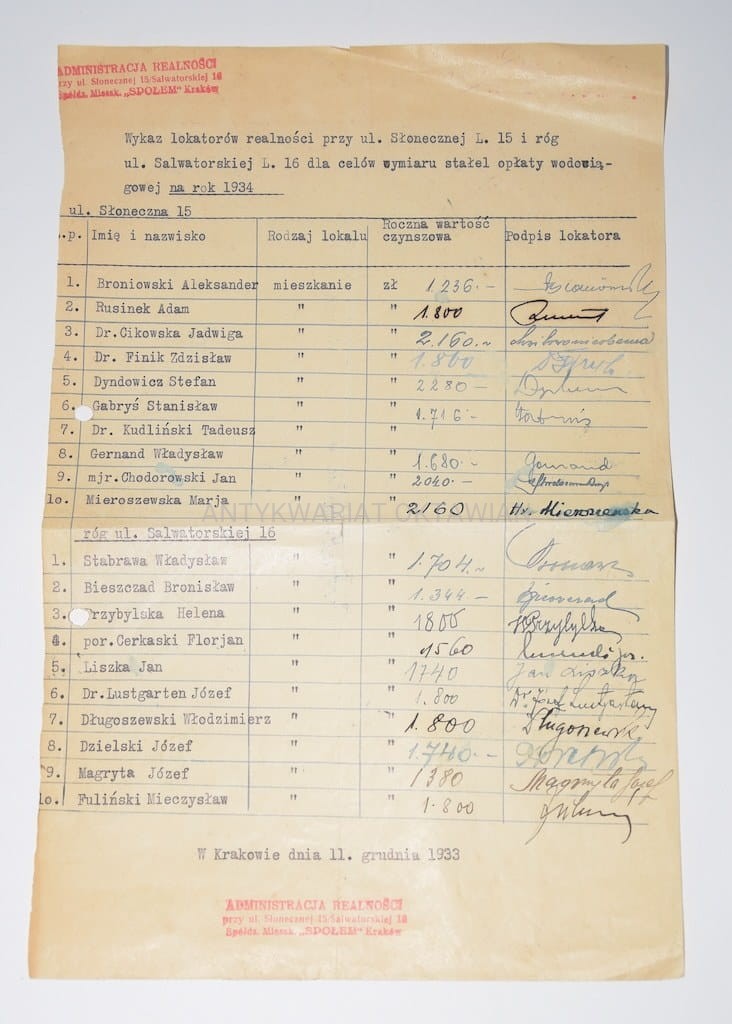 ADMINISTRACJA REALNOŚCI
przy ul. Słonecznej 15/Salwatorskiej 16
Spółdz. Mieszk. „SPOŁEM" Kraków
Wykaz lokatorów realności przy ul. Słonecznej L. 15 i róg
ul. Salwatorskiej L. 16 dla celów wymiaru stałej opłaty wodocią-
gowej na rok 1934
ul. Słoneczna 15
.p. Imię i nazwisko Rodzaj lokalu Roczna wartość czynszowa Podpis lokatora
1. Broniowski Aleksander mieszkanie zł 1.236.-
2. Rusinek Adam " " 1.800
3. Dr.Cikowska Jadwiga " " 2.160.-
4. Dr. Finik Zdzisław " " 1.860
5. Dyndowicz Stefan " " 2280-
6. Gabryś Stanisław " " 1.716-
7. Dr. Kudliński Tadeusz " "
8. Gernand Władysław " " 1.680.- Gernand
9. mjr.Chodorowski Jan " " 2040.-
1o. Mieroszewska Marja " " 2160 Hr. Mieroszewska
ANTYKWARIAT
róg ul. Salwatorskiej 16
1. Stabrawa Władysław " " 1.704.-
2. Bieszczad Bronisław " " 1.344.- Bieszczad
3. Przybylska Helena " " 1800 HPrzybylska
4. por.Cerkaski Florjan " " 1560
5. Liszka Jan " " 1740 Jan Liszka
6. Dr.Lustgarten Józef " " 1.800 Dr. Józef Lustgarten
7. Długoszewski Włodzimierz " " 1.800 Długoszewski
8. Dzielski Józef " " 1.740.-
9. Magryta Józef " " 1380 Magryta Józef
1o. Fuliński Mieczysław " " 1.800
W Krakowie dnia 11. grudnia 1933
ADMINISTRACJA REALNOŚCI
przy ul. Słonecznej 15/Salwatorskiej 16
Spółdz. Mieszk. „SPOŁEM" Kraków